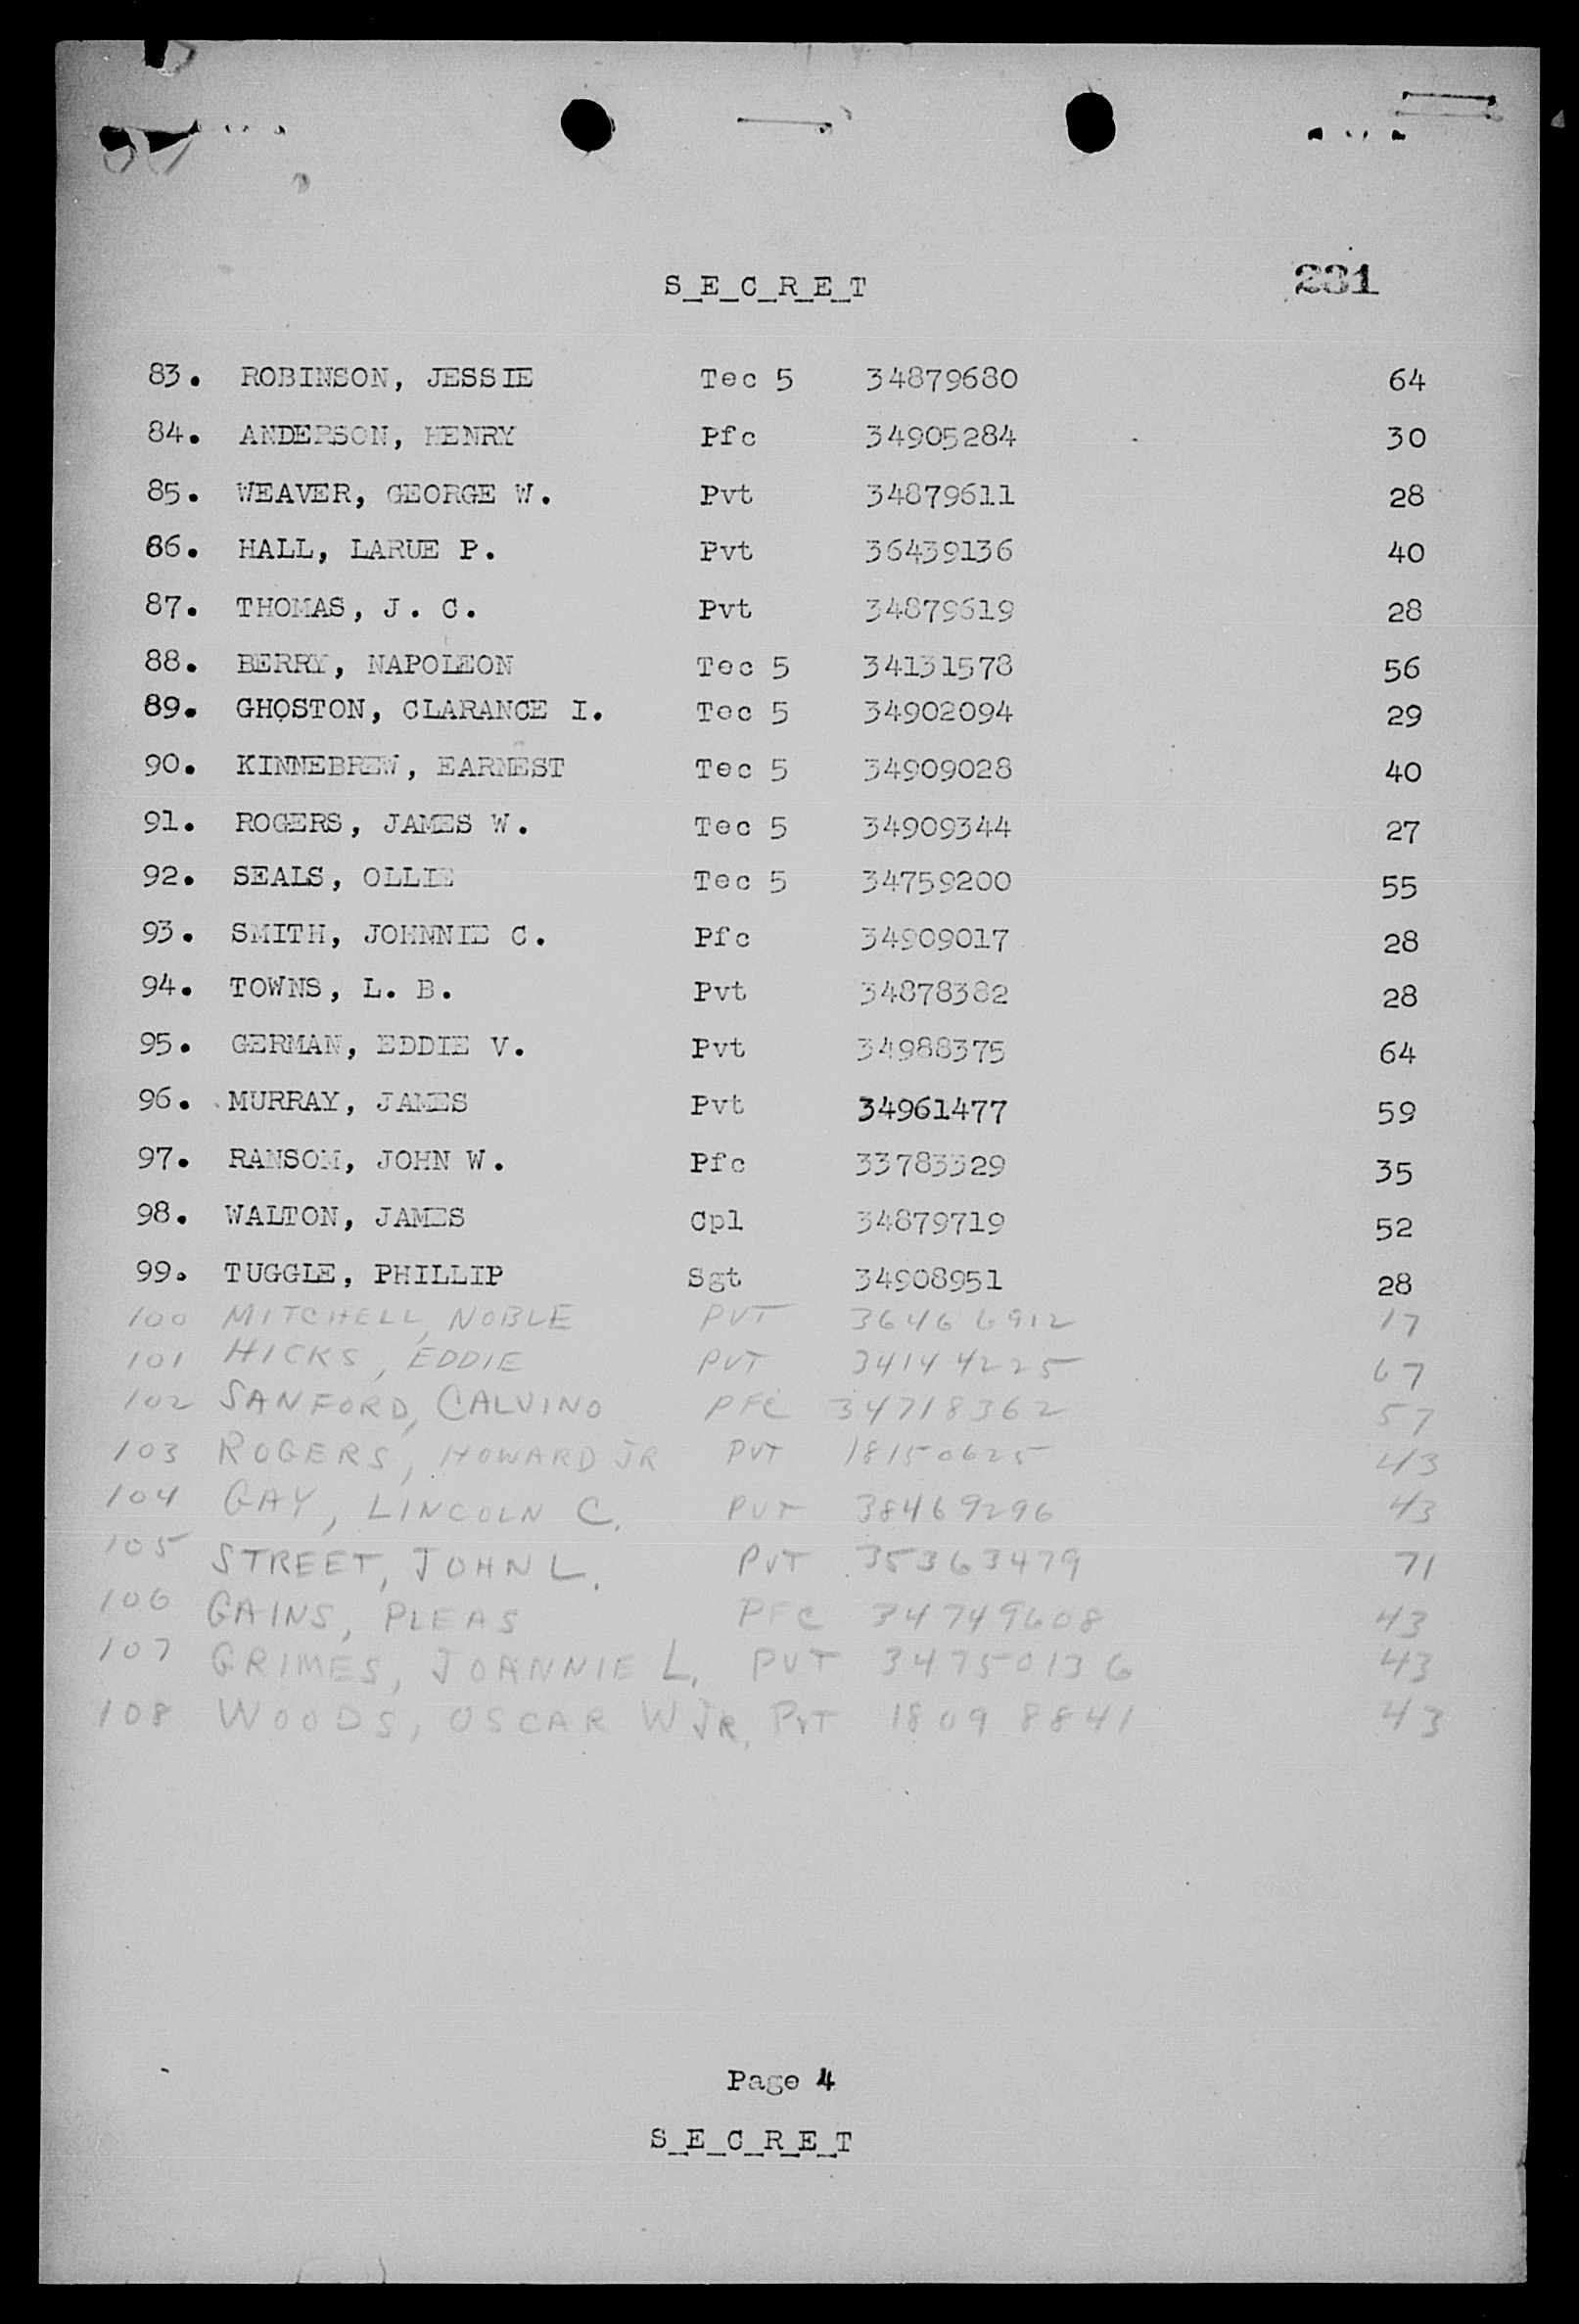 S_E_C_R_E_T 231
83. ROBINSON, JESSIE Tec 5 34879680 64
84. ANDERSON, HENRY Pfc 34905284 30
85. WEAVER, GEORGE W. Pvt 34879611 28
86. HALL, LARUE P. Pvt 36439136 40
87. THOMAS, J. C. Pvt 34879619 28
88. BERRY, NAPOLEON Tec 5 34131578 56
89. GHOSTON, CLARANCE I. Tec 5 34902094 29
90. KINNEBREW, EARNEST Tec 5 34909028 40
91. ROGERS, JAMES W. Tec 5 34909344 27
92. SEALS, OLLIE Tec 5 34759200 55
93. SMITH, JOHNNIE C. Pfc 34909017 28
94. TOWNS, L. B. Pvt 34878382 28
95. GERMAN, EDDIE V. Pvt 34988375 64
96. MURRAY, JAMES Pvt 34961477 59
97. RANSOM, JOHN W. Pfc 33783329 35
98. WALTON, JAMES Cpl 34879719 52
99. TUGGLE, PHILLIP Sgt 34908951 28
100 MITCHELL, NOBLE PVT 36466912 17
101 HICKS, EDDIE PVT 34144225 67
102 SANFORD, CALVINO PFC 34718362 57
103 ROGERS, HOWARD JR PVT 18150625 43
104 GAY, LINCOLN C. PVT 38469296 43
105 STREET, JOHN L. PVT 35363479 71
106 GAINS, PLEAS PFC 34749608 43
107 GRIMES, JOANNIE L. PVT 34750136 43
108 WOODS, OSCAR W JR. PVT 18098841 43
Page 4
S_E_C_R_E_T